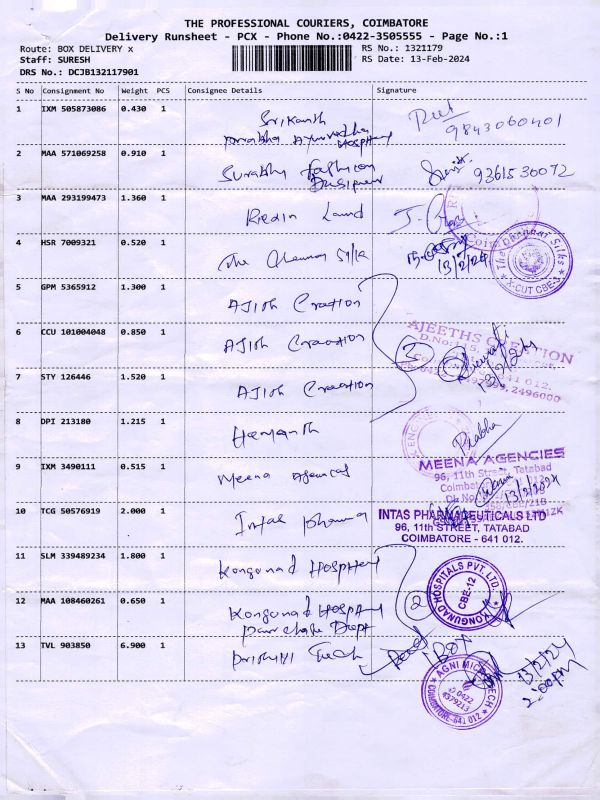 THE PROFESSIONAL COURIERS, COIMBATORE
Delivery Runsheet - PCX - Phone No.:0422-3505555 - Page No.:1
Route: BOX DELIVERY x
RS No.: 1321179
Staff: SURESH
RS Date: 13-Feb-2024
DRS No.: DCJB132117901
S No Consignment No Weight PCS Consignee Details Signature
1 IXM 505873086 0.430 1 Srikanth
9843060401
Prabha Ayurvedha
Hospital
2 MAA 571069258 0.910 1 Surabhy Fashion
Designer
9361530072
3 MAA 293199473 1.360 1 Redin Land
4 HSR 7009321 0.520 1 The Chennai Silks
13/2/24
The Chennai Silks
X-CUT CBE-3
5 GPM 5365912 1.300 1 Ajith Creation
6 CCU 101004048 0.850 1 Ajith Creation
3
AJEETHS CREATION
7 STY 126446 1.520 1 Ajith Creation
13/2/24
2496000
8 DPI 213180 1.215 1 Hemanth
Prabha
9 IXM 3490111 0.515 1 Meena Agencies
MEENA AGENCIES
96, 11th Street, Tatabad
13/2/2024
10 TCG 50576919 2.000 1 Intas Pharma
INTAS PHARMACEUTICALS LTD
96, 11th STREET, TATABAD
COIMBATORE - 641 012.
11 SLM 339489234 1.800 1 Kongunad Hospital
KONGUNAD HOSPITALS PVT. LTD.
CBE-12
12 MAA 108460261 0.650 1 Kongunad Hospital
Purchase Dept
2
13 TVL 903850 6.900 1 Prithivi Tech
Box
13/2/24
2:00pm
AGNI MICROTECH
0422
4379213
COIMBATORE-641 012